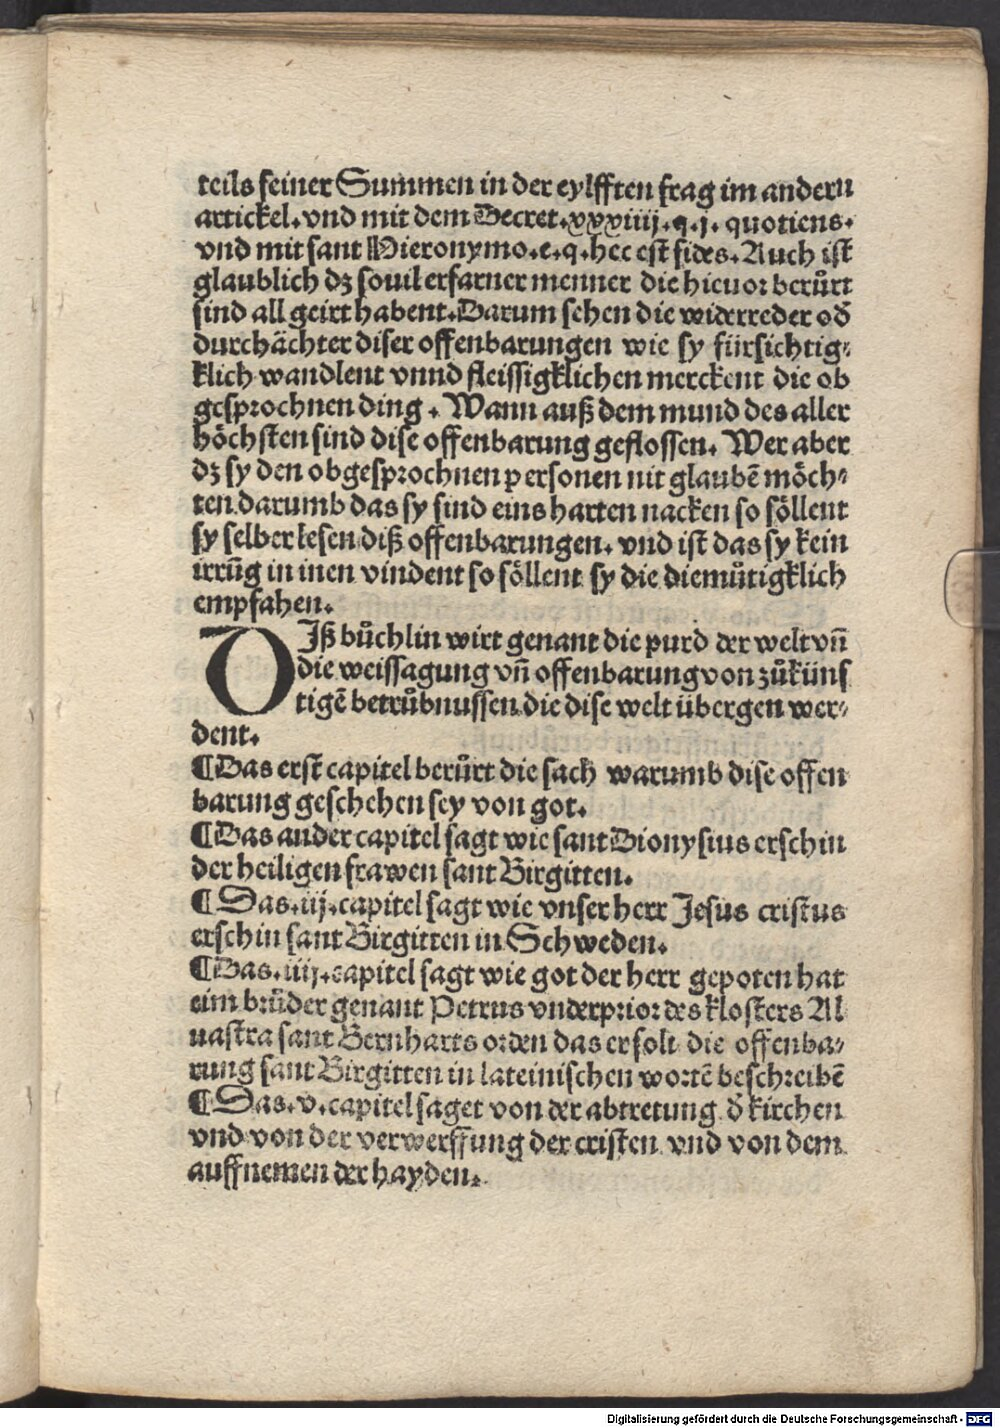 teils seiner Summen in der eylfften frag im andern
artickel. vnd mit dem Decret. xxxiiij. q. j. quotiens.
vnd mit sant Hieronymo. e. q. hec est fides. Auch ist
glaublich dz souil erfarner menner die hieuor berůrt
sind all geirt habent. Darum sehen die widerreder od̄
durchächter diser offenbarungen wie sy fürsichtig⸗
klich wandlent vnnd fleissigklichen merckent die ob
gesprochnen ding. Wann auß dem mund des aller
höchsten sind dise offenbarung geflossen. Wer aber
dz sy den obgesprochnen personen nit glaubē möch⸗
ten darumb das sy sind eins harten nacken so söllent
sy selber lesen diß offenbarungen. vnd ist das sy kein
irrūg in inen vindent so söllent sy die diemůtigklich
empfahen.
DIß bůchlin wirt genant die purd der welt vn̄
die weissagung vn̄ offenbarung von zůküns
tigē betrůbnussen die dise welt übergen wer⸗
dent.
¶Das erst capitel berůrt die sach warumb dise offen
barung geschehen sey von got.
¶Das ander capitel sagt wie sant Dionysius erschin
der heiligen frawen sant Birgitten.
¶Das. iij. capitel sagt wie vnser herr Jesus cristus
erschin sant Birgitten in Schweden.
¶Das. iiij. capitel sagt wie got der herr gepoten hat
eim brůder genant Petrus vnderprior des klosters Al
uastra sant Bernharts orden das er solt die offenba⸗
rung sant Birgitten in lateinischen wortē beschreibē
¶Das. v. capitel saget von der abtretung d̄ kirchen
vnd von der verwerffung der cristen vnd von dem
auffnemen der hayden.
Digitalisierung gefördert durch die Deutsche Forschungsgemeinschaft - DFG